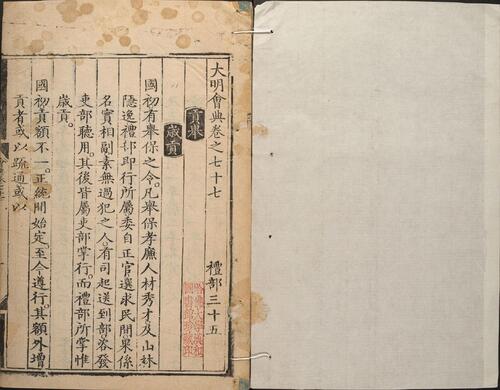 大明會典卷之七十七 禮部三十五
貢舉
歲貢
國初有舉保之令。凡舉保孝廉人材秀才及山林
隱逸禮部即行所屬委自正官選求民間果係
名實相副素無過犯之人有司起送到部咨發
吏部聽用。其後皆屬吏部掌行。而禮部所掌惟
歲貢。
國初貢額不一。正統間始定。至今遵行。其額外增
貢者或以疏通或以